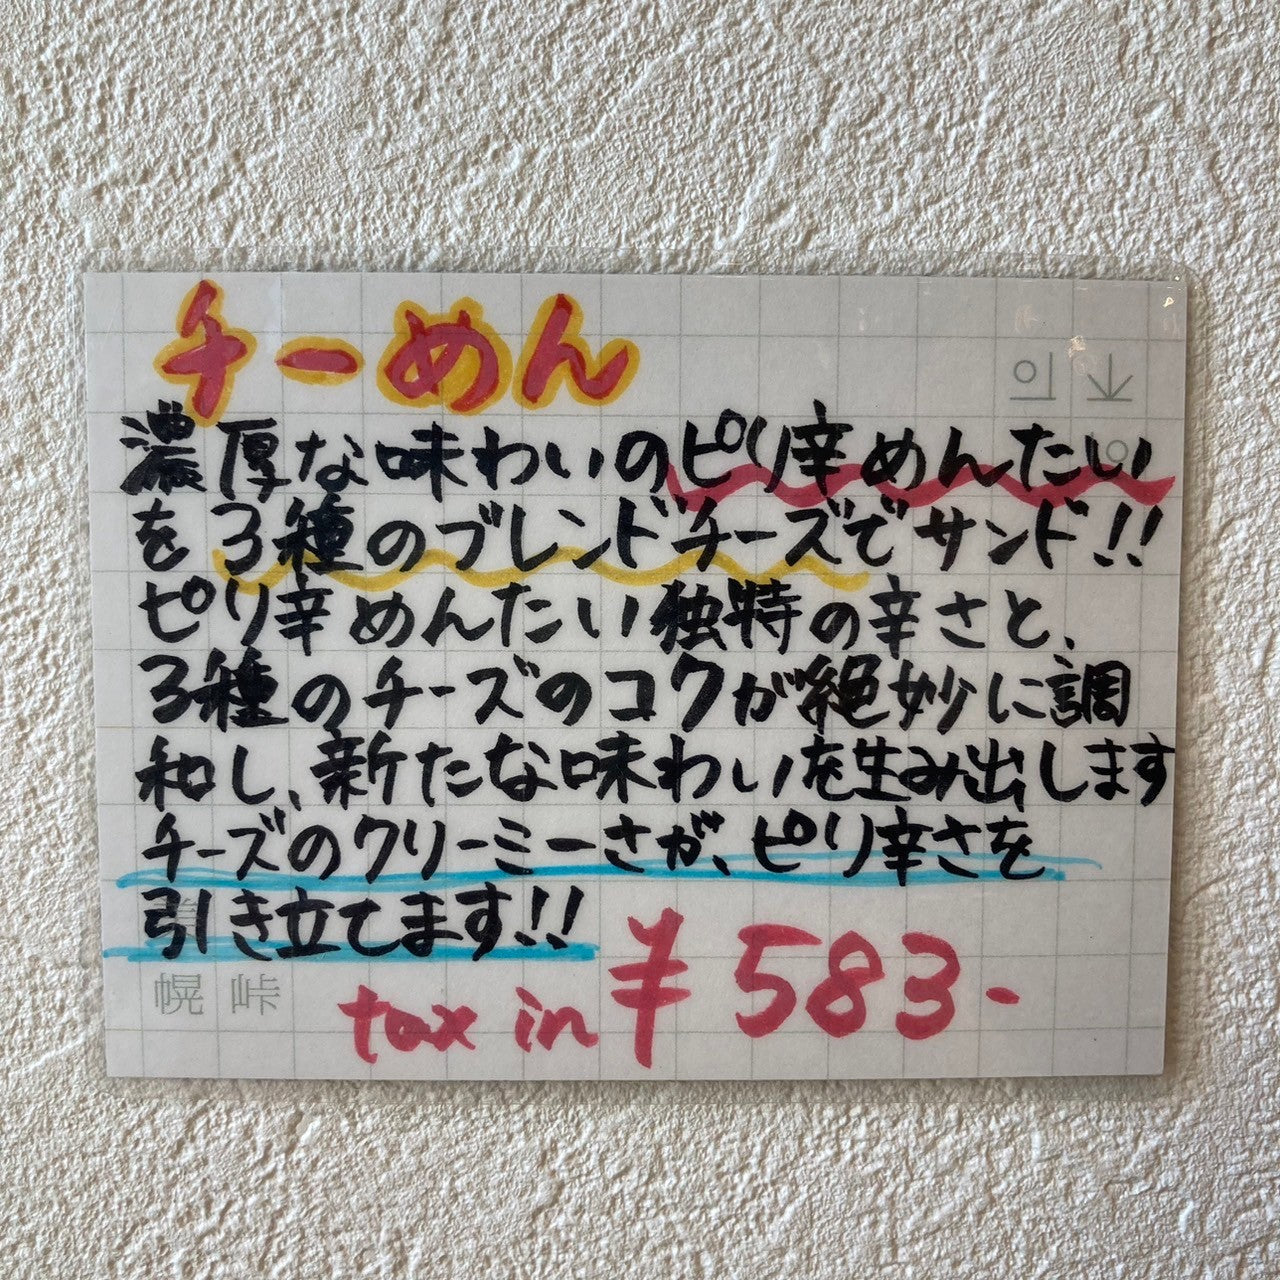 チーめん
濃厚な味わいのピリ辛めんたい
を3種のブレンドチーズでサンド!!
ピリ辛めんたい独特の辛さと、
3種のチーズのコクが絶妙に調
和し、新たな味わいを生み出します
チーズのクリーミーさが、ピリ辛さを
引き立てます!!
幌 峠
tax in ¥583-